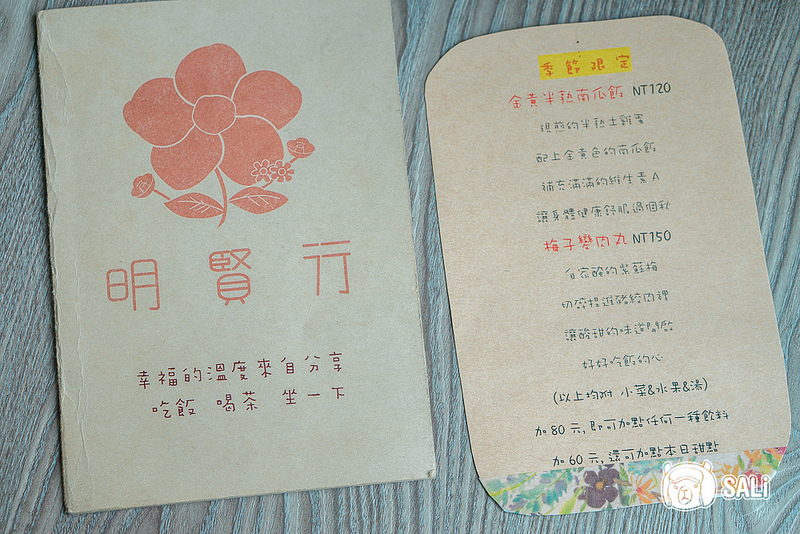 明賢行
幸福的溫度來自分享
吃飯 喝茶 坐一下
季節限定
金黃半熟南瓜飯 NT120
現煎的半熟土雞蛋
配上金黃色的南瓜飯
補充滿滿的維生素A
讓身體健康舒服過個秋
梅子變肉丸 NT150
自家醃的紫蘇梅
切碎捏進豬絞肉裡
讓酸甜的味道開啟
好好吃飯的心
(以上均附 小菜&水果&湯)
加80元,即可加點任何一種飲料
加60元,還可加點本日甜點
SALi